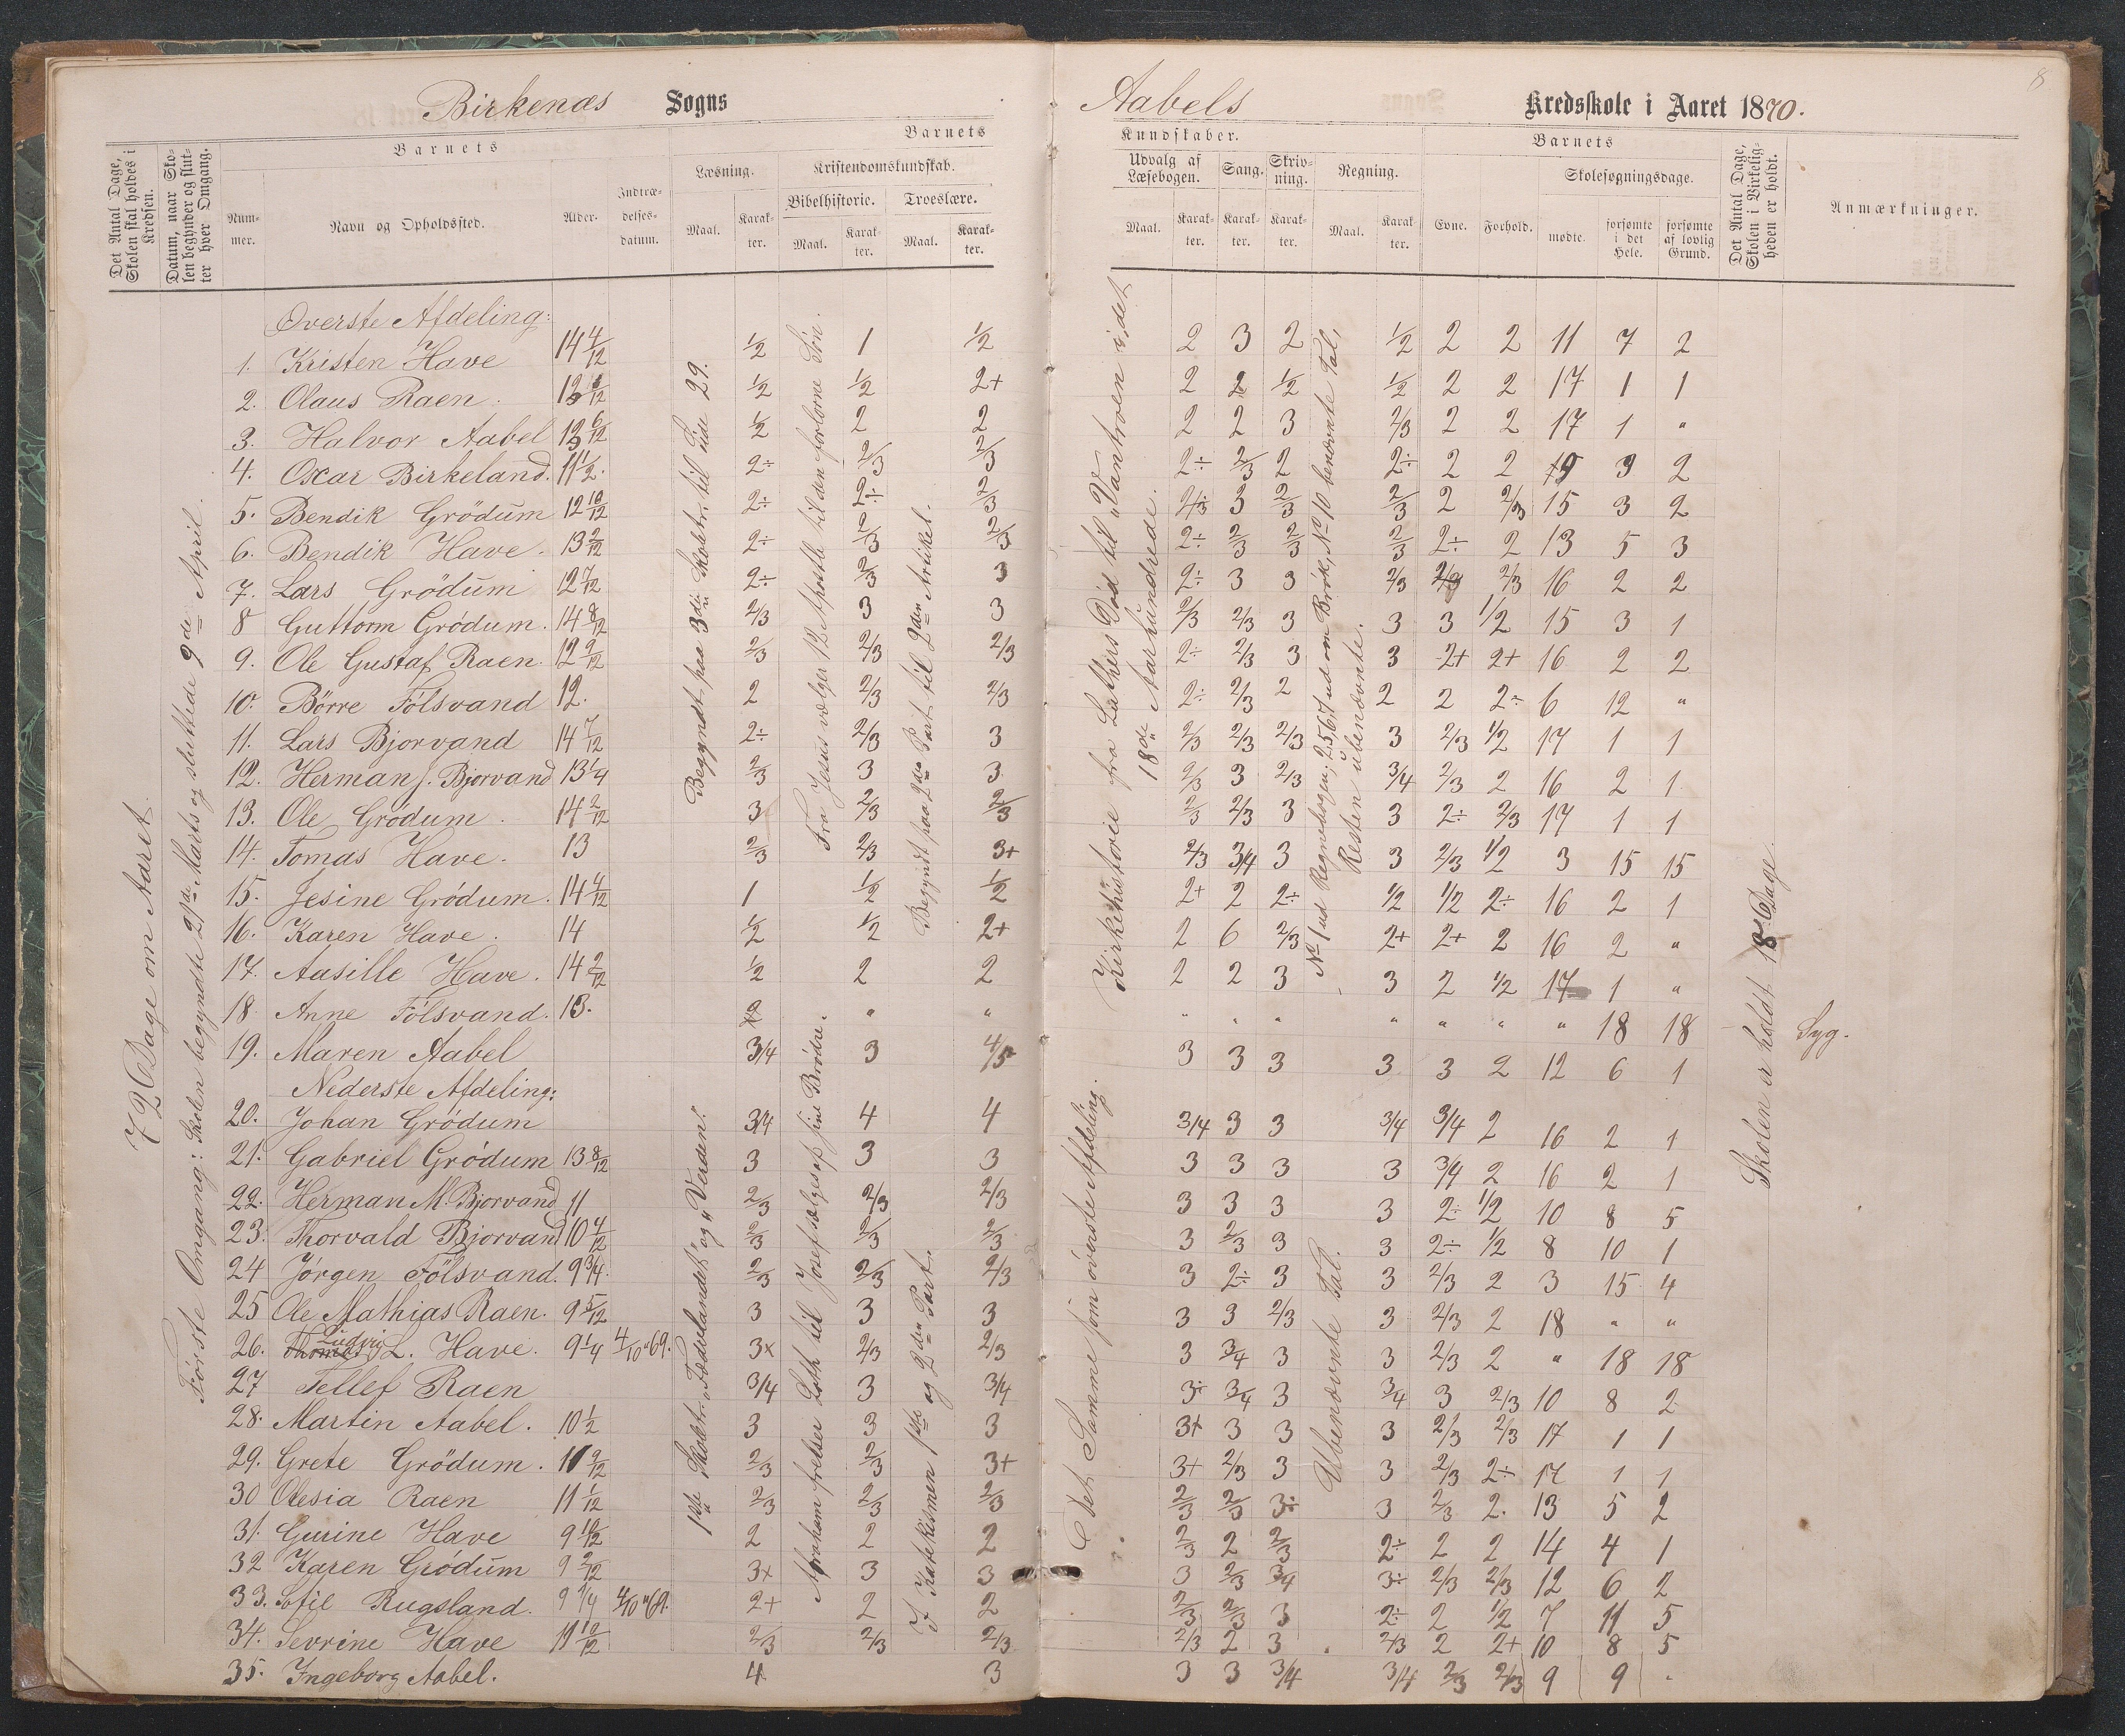 8
Birkenæs Sogns
Aabels Kredsskole i Aaret 1870.
Det Antal Dage, Skolen skal holdes i Kredsen.
Datum, naar Skolen begynder og slutter hver Omgang.
Barnets
Nummer.
Navn og Opholdssted.
Alder.
Indtrædelsesdatum.
Barnets
Læsning.
Maal.
Karakter.
Kristendomskundskab.
Bibelhistorie.
Maal.
Karakter.
Troeslære.
Maal.
Karakter.
Kundskaber.
Udvalg af Læsebogen.
Maal.
Karakter.
Sang.
Karakter.
Skrivning.
Karakter.
Regning.
Maal.
Karakter.
Barnets
Evne.
Forhold.
Skolesøgningsdage.
mødte.
forsømte i det Hele.
forsømte af lovlig Grund.
Det Antal Dage, Skolen i Virkeligheden er holdt.
Anmærkninger.
72 Dage om Aaret.
Første Omgang: Skolen begyndte 21de Marts og sluttede 9de April.
Begyndt paa 3die Skoletr. til Side 29.
Fra Jesus vælger 12 Apostle til den forlorne Søn.
Begyndt paa 2den Part til 2den Artikel.
Kirkehistorie fra Luthers Død til „Vantroen i det
18de Aarhundrede.
No 1 ud Regnebogen; 2567 ud om Brøk, No 10 benævnte Tal,
Resten ubenævnte.
Skolen er holdt 18 Dage.
1ste Skoletr. „Fædrelandet" og „Verden".
Abraham frelser Loth til Josef sælges af sine Brødre.
I Katekismen 1ste og 2den Part.
Det Samme som øverste Afdeling.
Ubenævnte Tal.
Øverste Afdeling:
1. Kristen Have 14 4/12 1/2 1 1/2 2 3 2 1/2 2 2 11 7 2
2. Olaus Raen. 1/2 1/2 2+ 2 2 1/2 1/2 2 2 17 1 1
3. Halvor Aabel 12 6/12 1/2 2 2 2 2 3 2/3 2 2 17 1 "
4. Oscar Birkeland. 11 1/2. 2÷ 2/3 2/3 2÷ 2/3 2 2÷ 2 2 3 2
5. Bendik Grödum 12 10/12 2÷ 2÷ 2/3 2/3 3 2/3 2/3 2 2/3 15 3 2
6. Bendik Have. 13 2/12 2÷ 2/3 2/3 2÷ 2/3 2/3 2/3 2÷ 2 13 5 3
7. Lars Grödum 12 7/12 2÷ 2/3 3 2÷ 3 3 2/3 2/3 2/3 16 2 2
8 Guttorm Grödum. 14 8/12 2/3 3 3 2/3 2/3 3 3 3 1/2 15 3 1
9. Ole Gustaf Raen. 12 9/12 2/3 2/3 2/3 2÷ 2/3 3 3 2+ 2+ 16 2 2
10. Börre Fölsvand 12. 2 2/3 2/3 2÷ 2/3 2 2 2 2÷ 6 12 "
11. Lars Bjorvand 14 7/12 2÷ 2/3 3 2/3 2/3 2/3 3 2/3 1/2 17 1 1
12. Herman J. Bjorvand 13 1/4 2/3 3 3 2/3 3 2/3 3/4 2/3 2 16 2 1
13. Ole Grödum. 14 2/12 3 2/3 2/3 2/3 2/3 3 3 2÷ 2/3 17 1 1
14. Tomas Have. 13 2/3 2/3 3+ 2/3 3/4 3 3 2/3 1/2 3 15 15
15. Jesine Grödum. 14 4/12 1 1/2 1/2 2+ 2 2÷ 1/2 1/2 2÷ 16 2 1
16. Karen Have. 14 1/2 1/2 2+ 2 6 2/3 2+ 2+ 2 16 2 "
17. Aasille Have. 14 2/12 1/2 2 2 2 2 3 3 2 1/2 17 1 "
18. Anne Fölsvand. 13. 2 " " " " " " " " " 18 18 Syg.
19. Maren Aabel 3/4 3 4/5 3 3 3 3 3 2 12 6 1
Nederste Afdeling:
20. Johan Grödum 3/4 4 4 3/4 3 3 3/4 3/4 2 16 2 1
21. Gabriel Grödum 13 8/12 3 3 3 3 3 3 3 3/4 2 16 2 1
22. Herman M. Bjorvand 11 2/3 2/3 2/3 3 3 3 3 2÷ 1/2 10 8 5
23. Thorvald Bjorvand 10 4/12 2/3 2/3 2/3 3 2/3 3 3 2÷ 1/2 8 10 1
24 Jörgen Fölsvand. 9 3/4. 2/3 2/3 2/3 3 2÷ 3 3 2/3 2 3 15 4
25 Ole Mathias Raen. 9 5/12 3 3 3 3 3 2/3 3 2/3 2 18 " "
26. Thomas Ludvig L. Have. 9 1/4 4/10 "69. 3x 2/3 2/3 3 3/4 3 3 2/3 2 " 18 18
27 Tellef Raen 3/4 3 3/4 3÷ 3/4 3 3/4 3 2/3 10 8 2
28. Martin Aabel. 10 1/2 3 3 3 3+ 3 3 3 2/3 2/3 17 1 1
29. Grete Grödum. 11 9/12 2/3 2/3 3+ 3+ 2/3 3 3 2/3 2÷ 17 1 1
30 Olesia Raen 11 1/12 2/3 2/3 2/3 2/3 2/3 3÷ 3 2/3 2. 13 5 2
31. Gurine Have 9 10/12 2 2 2 2/3 2 2/3 2÷ 2 2 14 4 1
32 Karen Grödum 9 2/12 3x 3 3 3 2/3 3/4 3÷ 2/3 2/3 12 6 2
33. Sofie Rugsland. 9 1/4 4/10 "69. 2+ 2 2 2/3 2/3 3 2÷ 2 1/2 7 11 5
34. Sevrine Have 11 10/12 2/3 2/3 2/3 2/3 2 3 2/3 2 2+ 10 8 5
35. Ingeborg Aabel. 4 3 3 3 3/4 3/4 2/3 2/3 9 9 "